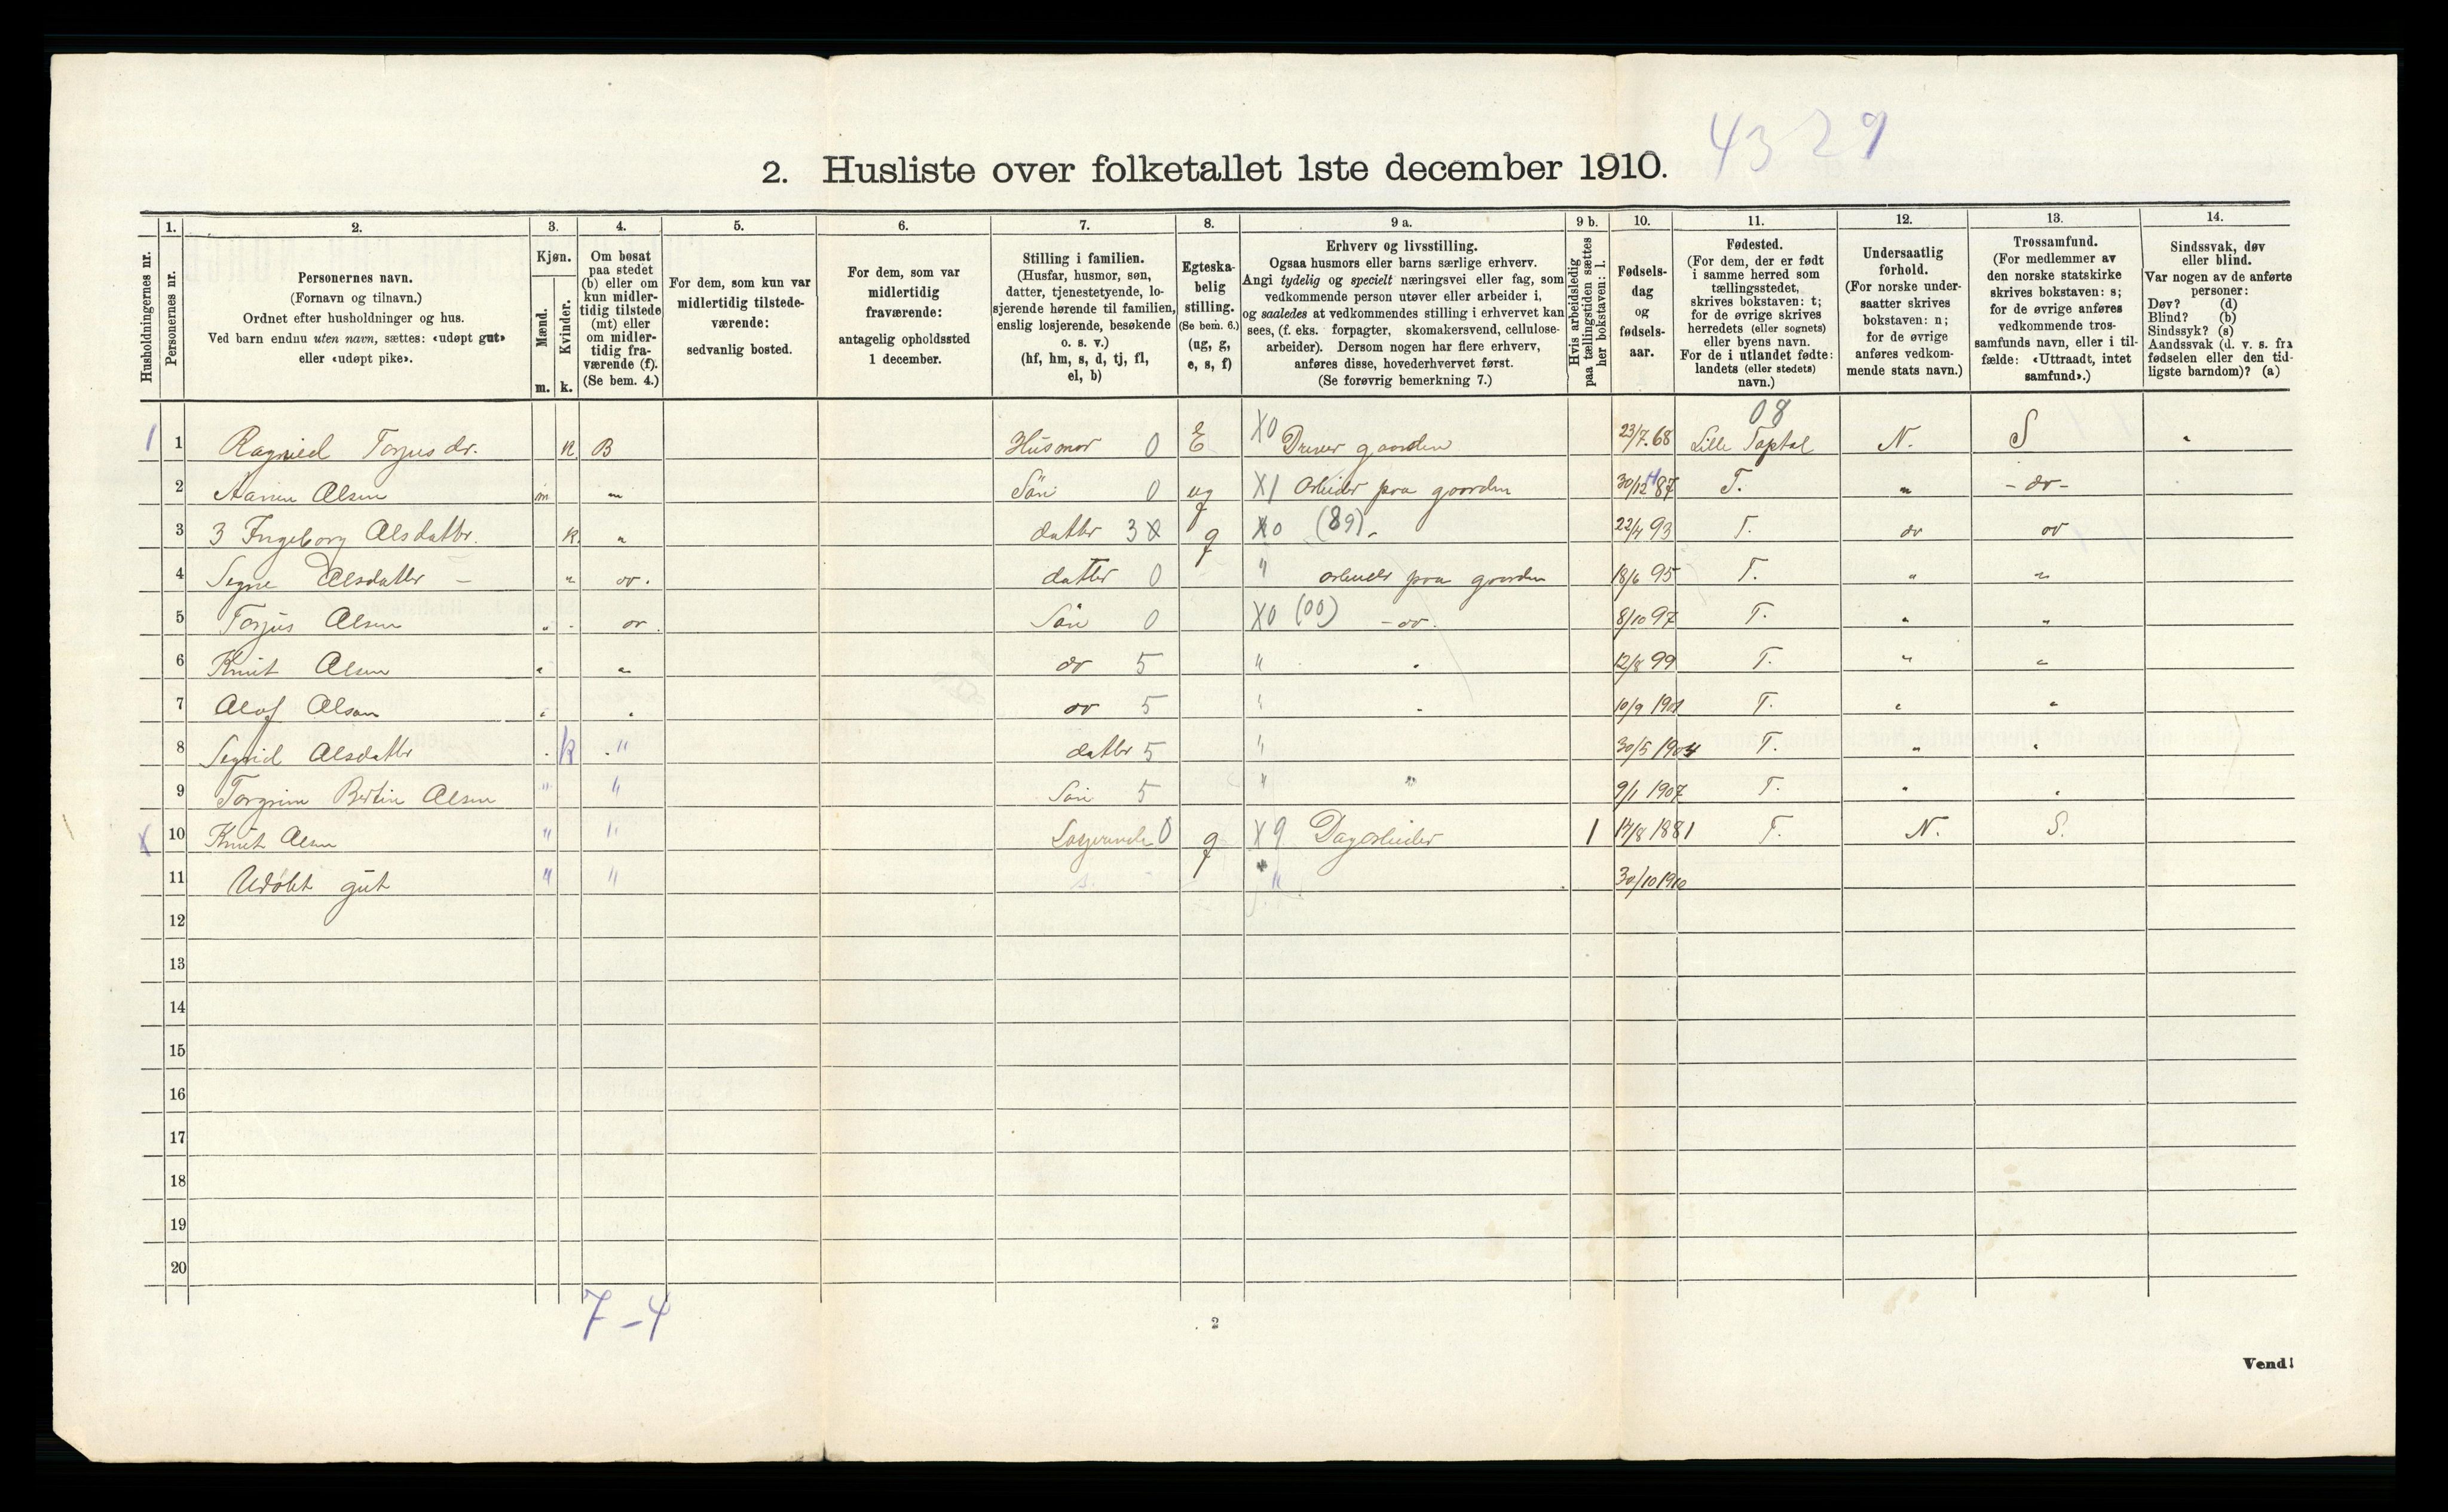 4329
2. Husliste over folketallet 1ste december 1910.
Husholdningernes nr.
1.
Personernes nr.
2.
Personernes navn.
(Fornavn og tilnavn.)
Ordnet efter husholdninger og hus.
Ved barn endnu uten navn, sættes: «udøpt gut»
eller «udøpt pike».
3.
Kjøn.
Mænd.
m.
Kvinder.
k.
4.
Om bosat
paa stedet
(b) eller om
kun midler-
tidig tilstede
(mt) eller
om midler-
tidig fra-
værende (f).
(Se bem. 4.)
5.
For dem, som kun var
midlertidig tilstede-
værende:
sedvanlig bosted.
6.
For dem, som var
midlertidig
fraværende:
antagelig opholdssted
1 december.
7.
Stilling i familien.
(Husfar, husmor, søn,
datter, tjenestetyende, lo-
sjerende hørende til familien,
enslig losjerende, besøkende
o. s. v.)
(hf, hm, s, d, tj, fl,
el, b)
8.
Egteska-
belig
stilling.
(Se bem. 6.)
(ug, g,
e, s, f)
9 a.
Erhverv og livsstilling.
Ogsaa husmors eller barns særlige erhverv.
Angi tydelig og specielt næringsvei eller fag, som
vedkommende person utøver eller arbeider i,
og saaledes at vedkommendes stilling i erhvervet kan
sees, (f. eks. forpagter, skomakersvend, cellulose-
arbeider). Dersom nogen har flere erhverv,
anføres disse, hovederhvervet først.
(Se forøvrig bemerkning 7.)
9 b.
Hvis arbeidsledig
paa tællingstiden sættes
her bokstaven: l.
10.
Fødsels-
dag
og
fødsels-
aar.
11.
Fødested.
(For dem, der er født
i samme herred som
tællingsstedet,
skrives bokstaven: t;
for de øvrige skrives
herredets (eller sognets)
eller byens navn.
For de i utlandet fødte:
landets (eller stedets)
navn.)
12.
Undersaatlig
forhold.
(For norske under-
saatter skrives
bokstaven: n;
for de øvrige
anføres vedkom-
mende stats navn.)
13.
Trossamfund.
(For medlemmer av
den norske statskirke
skrives bokstaven: s;
for de øvrige anføres
vedkommende tros-
samfunds navn, eller i til-
fælde: «Uttraadt, intet
samfund».)
14.
Sindssvak, døv
eller blind.
Var nogen av de anførte
personer:
Døv? (d)
Blind? (b)
Sindssyk? (s)
Aandssvak (d. v. s. fra
fødselen eller den tid-
ligste barndom)? (a)
08
1 1 Torjusdr. k B Husmor 0 E X0 Driver gaarden 23/7.68 Lille N. S
2 Alsen m " Sön 0 ug X1 Arbeider paa gaarden 30/12 87 T. " -do-
3 3 Ingeborg Alsdattr. k. " dattr 3 X g X0 (89) 22/4 93 T. do do
4 Signe Alsdattr - " do. datter 0 " arbeider paa gaarden 18/6 95 T. " "
5 Torjus Alsen " - do. Sön 0 X0 (00) - do. 8/10 97 T. " "
6 Knut Alsen " " do 5 " " 12/8 99 T. " "
7 Olaf Alsen " " do 5 " " 10/9 1901 T. " "
8 Sigrid Alsdattr k " dattr 5 " 30/5 1904 T. " "
9 Torgrim Bertin Alsen " " Sön 5 " " 9/1 1907 T. " "
X 10 Knut Alsen " " Losjerende 0 g X 9 Dagarbeider l 14/8 1881 T. N. S.
11 Udöbt gut " " " 30/10 1910
12
13
14
15
16
17
18
19
20
7-4
2
Vend!